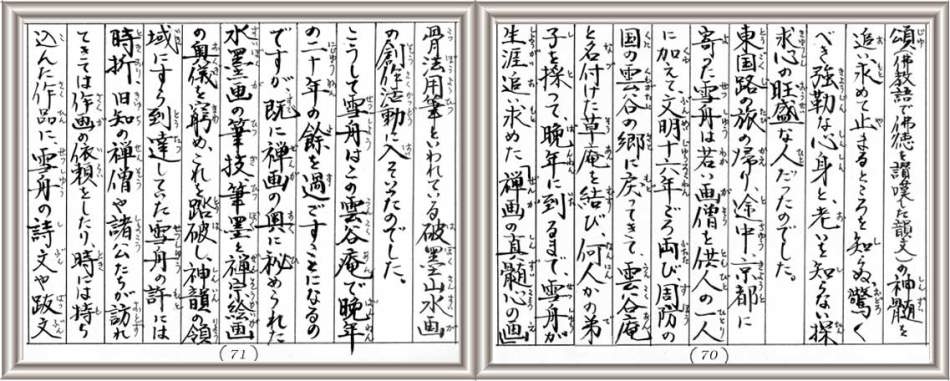 頌(佛教語で佛徳を讃嘆した韻文)の神髄を
追い求めて止まるところを知らぬ驚く
べき強靭な心身と、老いを知らない探
求心の旺盛な人だったのでした。
東国路の旅の帰り、途中、京都に
寄った雪舟は若い画僧を供人の一人
に加えて、文明十六年ごろ両び周防の
国の雲谷の郷に戻ってきて、雲谷庵
と名付けた草庵を結び、何人かの弟
子を採って、晩年に到るまで、雪舟が
生涯追い求めた「禅画の真髄心の画
(70)
骨法用筆といわれている破墨山水画
の創作活動に入っていったのでした。
こうして雪舟はこの雲谷庵で晩年
の二十年の余を過ごすことになるの
ですが、既に禅画の奥に秘められた
水墨画の筆技、筆墨と禅宗絵画
の奥儀を窮め、これを踏破し、神韻の領
域にすら到達していた雪舟の許には
時折、旧知の禅僧や諸公たちが訪れ
てきては作画の依頼をしたり、時には持ち
込んだ作品に雪舟の詩文や跋文
(71)